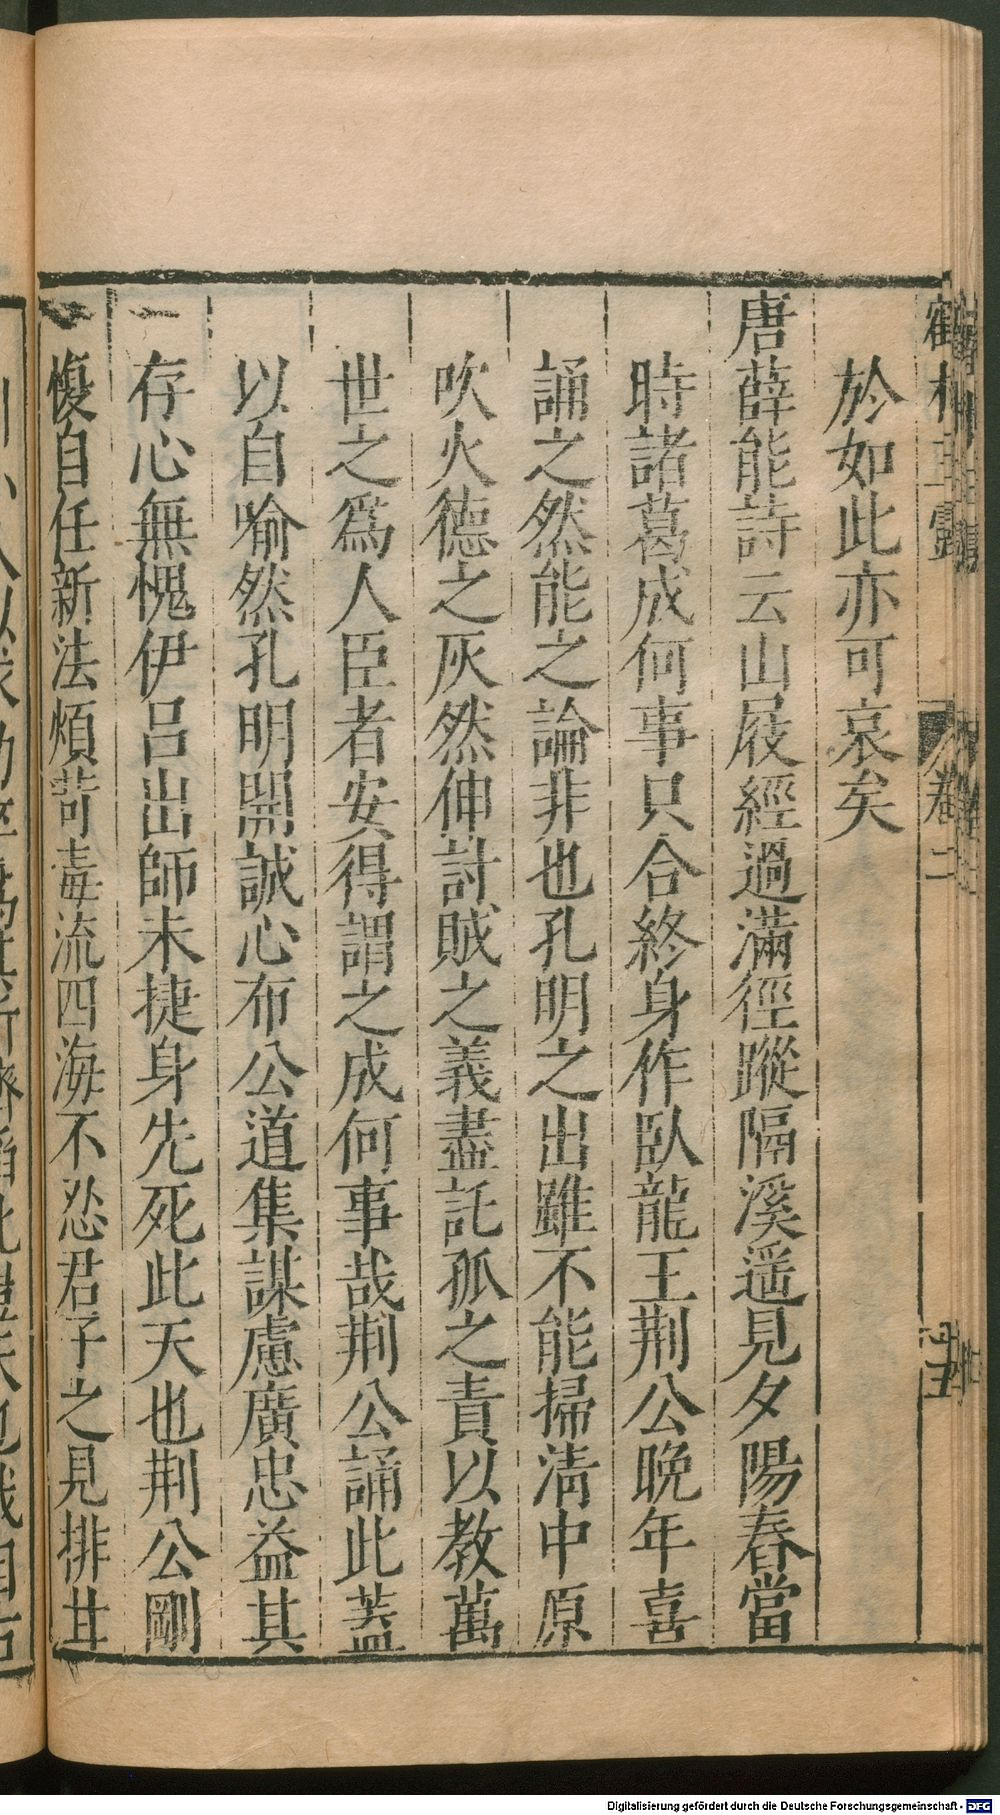 於如此亦可哀矣
唐薛能詩云山屐經過滿徑蹤隔溪遥見夕陽舂當
時諸葛成何事只合終身作臥龍王荆公晚年喜
誦之然能之論非也孔明之出雖不能掃清中原
吹火德之灰然伸討賊之義盡託孤之責以教萬
世之爲人臣者安得謂之成何事哉荆公誦此蓋
以自喻然孔明開誠心布公道集謀慮廣忠益其
存心無愧伊呂出師未捷身先死此天也荆公剛
愎自任新法煩苛毒流四海不忍君子之見排甘
卷二
Digitalisierung gefördert durch die Deutsche Forschungsgemeinschaft - DFG